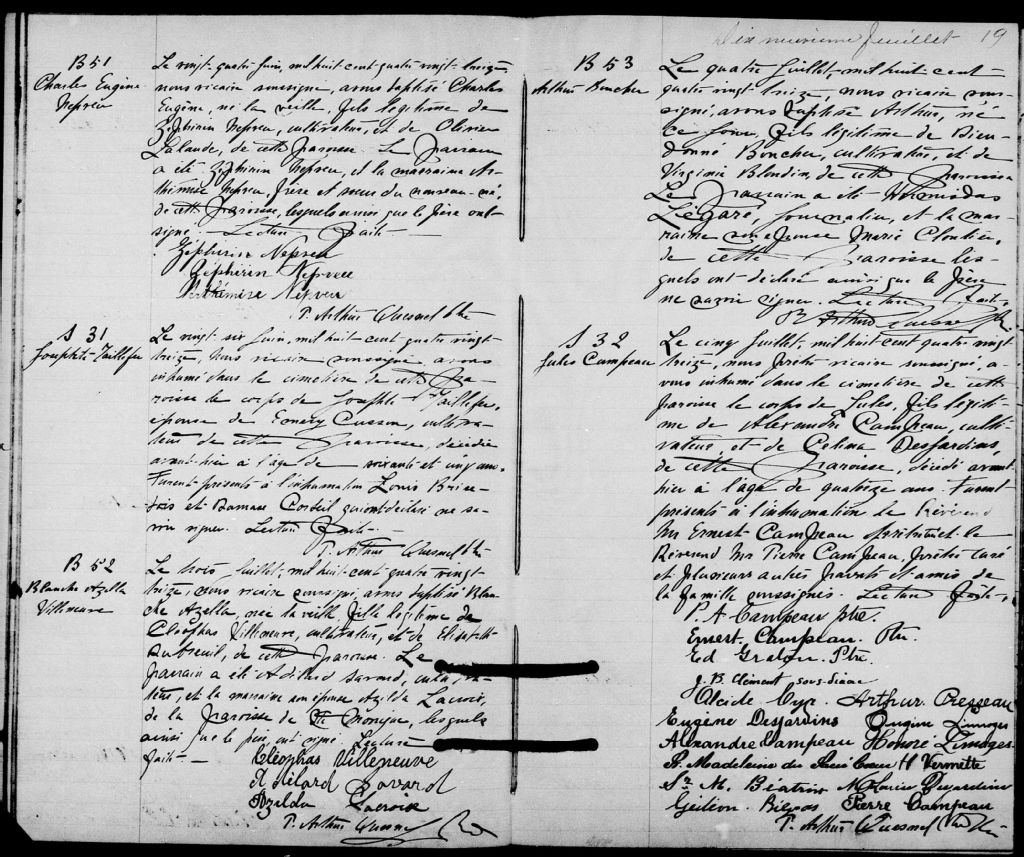 B 51
Charles Eugène
Nepveu
Le vingt-quatre Juin, mil huit cent quatre vingt treize,
nous vicaire soussigné, avons baptisé Charles
Eugène, né la veille, fils légitime de
Zéphirin Nepveu, cultivateur, et de Olivine
Lalande, de cette paroisse. Le parrain
a été Zéphirin Nepveu, et la marraine Ar-
thémise Nepveu frère et sœur du nouveau-né,
de cette paroisse, lesquels ainsi que le père ont
signé. Lecture faite
Zéphirin Nepveu
Zéphirin Nepveu
Arthémise Nepveu
P. Arthur Quesnel Ptre
S 31
Josephte Taillefer
Le vingt six Juin, mil huit cent quatre vingt
treize, nous vicaire soussigné avons
inhumé dans le cimetière de cette pa-
roisse le corps de Josephte Taillefer,
épouse de Emery Cusson, cultiva-
teur de cette paroisse, décédée
avant-hier à l'âge de soixante et cinq ans.
Furent présents à l'inhumation Louis Brise-
bois et Damase Corbeil qui ont déclaré ne sa-
voir signer. Lecture faite.
P. Arthur Quesnel Ptre
B 52
Blanche Azella
Villeneuve
Le trois Juillet, mil huit-cent quatre vingt
treize, nous vicaire soussigné, avons baptisé Blan-
che Azella née la veille, fille légitime de
Cléophas Villeneuve, cultivateur, et de Elizabeth
Dubreuil, de cette paroisse. Le
parrain a été Adélard Savard, cultiva-
teur, et la marraine son épouse Azilda Lacroix,
de la paroisse de Ste Monique, lesquels
ainsi que le père ont signé. Lecture
faite
Cléophas Villeneuve
Adélard Savard
Azilda Lacroix
P. Arthur Quesnel Ptre
Dix neuvième feuillet 19
B 53
Arthur Boucher
Le quatre Juillet, mil huit cent
quatre vingt treize, nous vicaire sous-
signé, avons baptisé Arthur, né
ce jour, fils légitime de Dieu-
donné Boucher, cultivateur, et de
Virginie Blondin, de cette paroisse
Le parrain a été Hormisdas
Légaré, journalier, et la mar-
raine son épouse Marie Cloutier,
de cette paroisse les-
quels ont déclaré ainsi que le père
ne savoir signer. Lecture faite.
P. Arthur Quesnel Ptre
S 32
Jules Campeau
Le cinq Juillet, mil huit cent quatre vingt
treize, nous prêtre vicaire soussigné, a-
vons inhumé dans le cimetière de cette
paroisse le corps de Jules, fils légiti-
me de Alexandre Campeau, culti-
vateur, et de Celina Desjardins,
de cette paroisse, décédé avant
hier à l'âge de quatorze ans. Furent
présents à l'inhumation le Révérend
Mr Ernest Campeau prêtre et le
Révérend Mr Pierre Campeau, prêtre curé
et plusieurs autres parents et amis de
la famille soussignés. Lecture faite.
P. A. Campeau ptre.
Ernest Campeau. Ptr.
Ed Graton. Ptr.
J. B. Clément sous-diacre
Alcide Cyr. Arthur Presseau
Eugène Desjardins Eugène Limoges
Alexandre Campeau Honoré Limoges
Sr Madeleine du Sacré Cœur H Vermette
Sr. M. Béatrix M Louise Desjardins
Gédéon Pierre Campeau
P. Arthur Quesnel